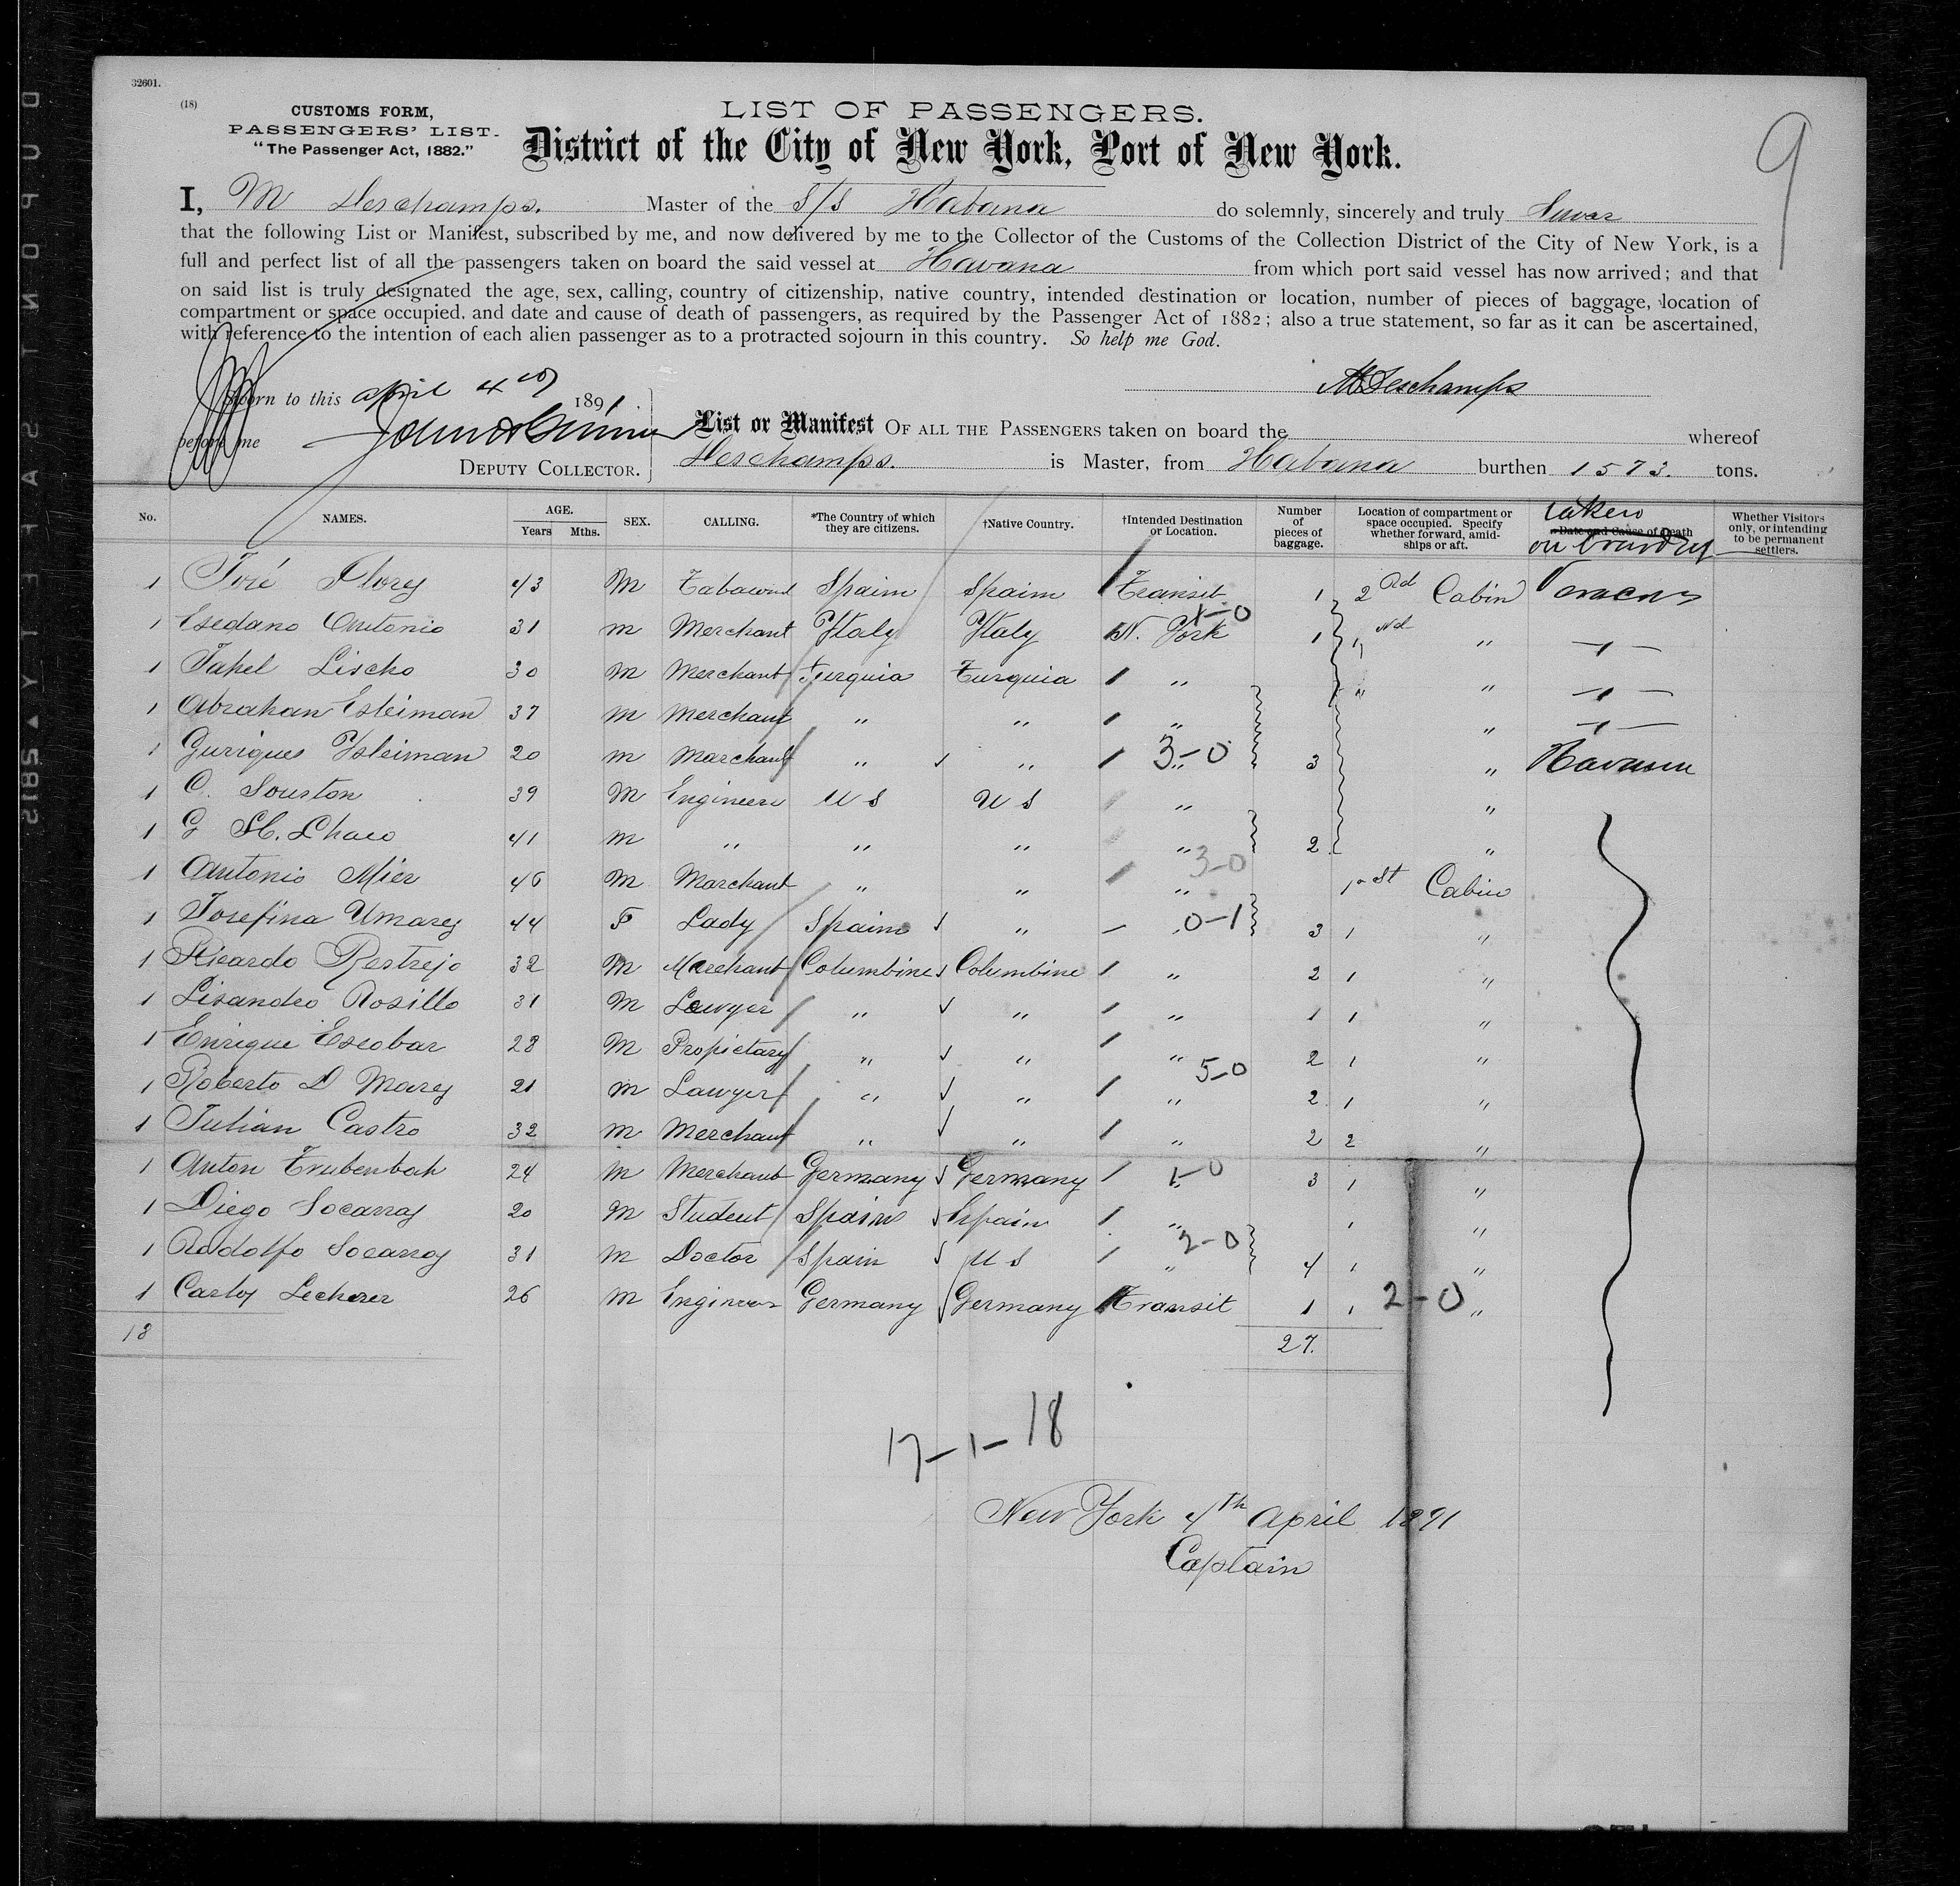 32601.
(18)
CUSTOMS FORM,
PASSENGERS' LIST.
"The Passenger Act, 1882."
LIST OF PASSENGERS.
District of the City of New York, Port of New York.
9
I, M Deschamps. Master of the S/S Habana do solemnly, sincerely and truly Swear
that the following List or Manifest, subscribed by me, and now delivered by me to the Collector of the Customs of the Collection District of the City of New York, is a
full and perfect list of all the passengers taken on board the said vessel at Havana from which port said vessel has now arrived; and that
on said list is truly designated the age, sex, calling, country of citizenship, native country, intended destination or location, number of pieces of baggage, location of
compartment or space occupied, and date and cause of death of passengers, as required by the Passenger Act of 1882; also a true statement, so far as it can be ascertained,
with reference to the intention of each alien passenger as to a protracted sojourn in this country. So help me God.
Sworn to this april 4th 1891.
MDeschamps
before me
DEPUTY COLLECTOR.
List or Manifest OF ALL THE PASSENGERS taken on board the whereof
Deschamps. is Master, from Habana burthen 1573. tons.
No. NAMES. AGE. Years Mths. SEX. CALLING. *The Country of which they are citizens. †Native Country. †Intended Destination or Location. Number of pieces of baggage. Location of compartment or space occupied. Specify whether forward, amidships or aft. Date and Cause of Death taken on board at Whether Visitors only, or intending to be permanent settlers.
1 José Flores 43 M Spain Spain Transit 1 2nd Cabin
1 Esedano Antonio 31 m Merchant Ytaly Ytaly N. York 1-0 1 " nd "
1 Tahel Lischo 30 M Merchant Turquia Turquia " " "
1 Abrahan Esleiman 37 m Merchant " " " "
1 Gurigues Ysleiman 20 m Marchant " " " 3-0 3 " Havana
1 C. Souston 39 M Engineer U S U S " "
1 G H. Chaco 41 m " " " " 2 "
1 Antonio Mier 46 M Marchant " " " 3-0 1st Cabin
1 Josefina Umares 44 F Lady Spain " 0-1 3 1 "
1 Ricardo Restrejo 32 M Merchant Columbine Columbine " 2 1 "
1 Lisandro Rosillo 31 M Lawyer " " " 1 1 "
1 Enrique Escobar 28 M Propietary " " " 2 1 "
1 Roberto D Mares 21 m Lawyer " " " 5-0 2 1 "
1 Julian Castro 32 m Merchant " " " 2 2 "
1 Anton Trubenbach 24 m Merchant Germany Germany " 1-0 3 1 "
1 Diego Socarras 20 M Student Spain Spain " 1 "
1 Rodolfo Socarras 31 m Doctor Spain U S " 2-0 4 1 "
1 Carlos Lecherer 26 M Engineer Germany Germany Transit 1 1 2-0 "
18 27.
17-1-18
New York 4th April 1891
Captain